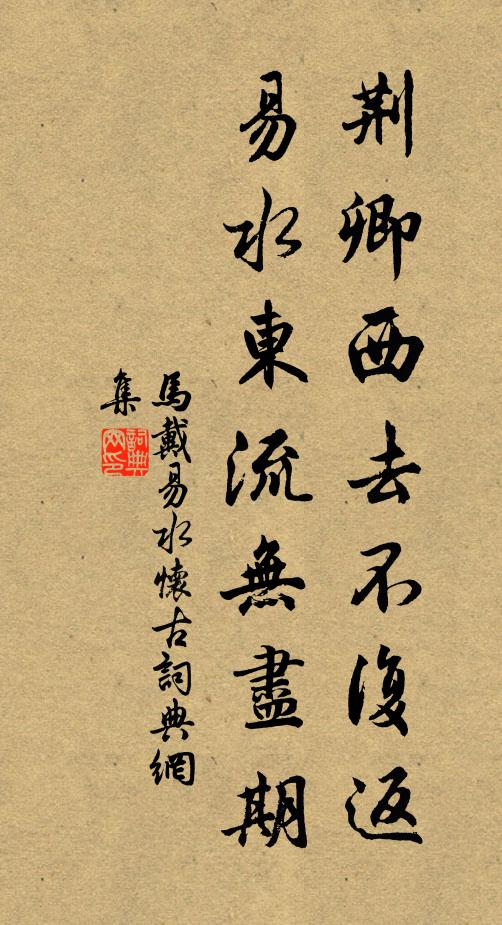 荆卿西去不復返
易水東流無盡期
馬戴易水懷古詞典網
集
詞典網印